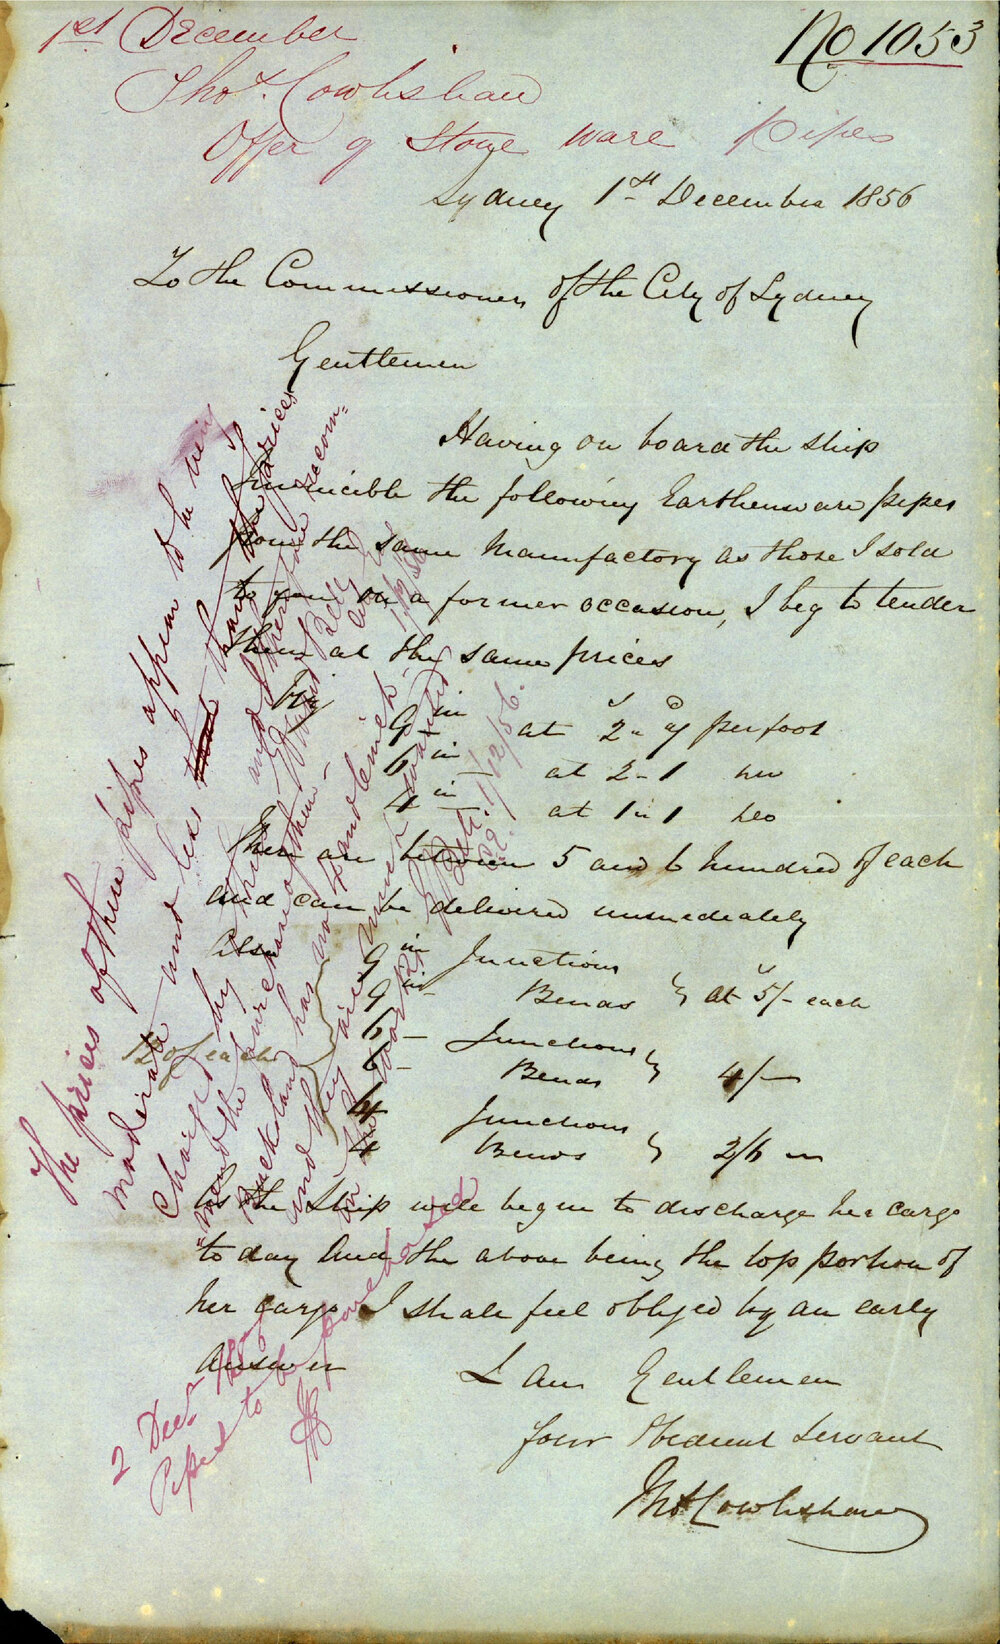 1st December
No 1053
Thos. Cowlishaw
Offer of Stone ware Pipes
Sydney 1st December 1856
To the Commissioners of the City of Sydney
Gentlemen
Having on board the ship
Invincible the following Earthenware pipes
from the same Manufactory as those I sold
to you on a former occasion, I beg to tender
them at the same prices
Viz
9 in at 2 " 9 per foot
6 in at 2 - 1 "
4 in at 1 " 1 "
There are between 5 and 6 hundred of each
and can be delivered immediately
Also
9 in Junctions
9 in Bends } at 5/- each
6 - Junctions
6 - Bends } 4/-
4 Junctions
4 Bends } 2/6
12 of each
As the Ship will begin to discharge her cargo
to day and the above being the top portion of
her cargo I shall feel obliged by an early
answer
I am Gentlemen
Your Obedient Servant
Thos Cowlishaw
The prices of these pipes appear to be very
moderate and less than the prices
charged by and I therefore recom=
"mend the purchase of them
Buckland has not and
and they are much wanted
on the works
1/12/56.
2 Decr.
Pipes to be purchased